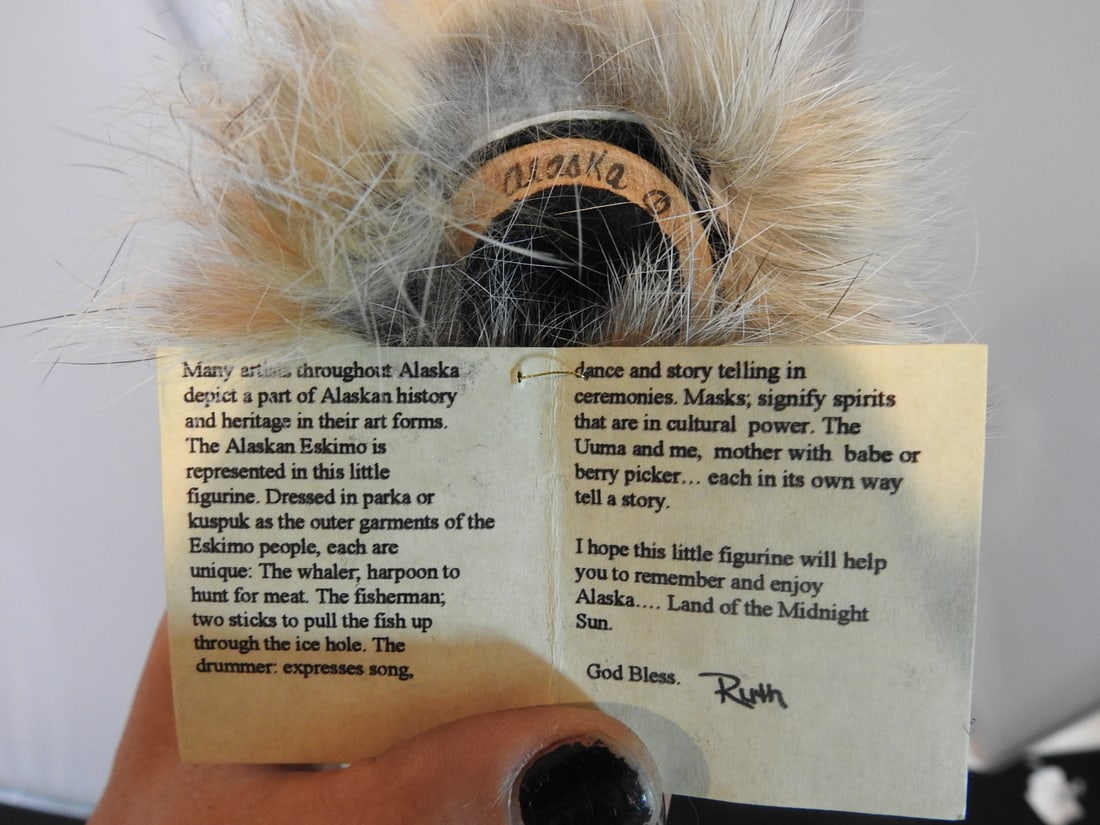 alaska ©
Many artists throughout Alaska
depict a part of Alaskan history
and heritage in their art forms.
The Alaskan Eskimo is
represented in this little
figurine. Dressed in parka or
kuspuk as the outer garments of the
Eskimo people, each are
unique: The whaler, harpoon to
hunt for meat. The fisherman;
two sticks to pull the fish up
through the ice hole. The
drummer: expresses song,
dance and story telling in
ceremonies. Masks; signify spirits
that are in cultural power. The
Uuma and me, mother with babe or
berry picker... each in its own way
tell a story.
I hope this little figurine will help
you to remember and enjoy
Alaska.... Land of the Midnight
Sun.
God Bless. Ruth